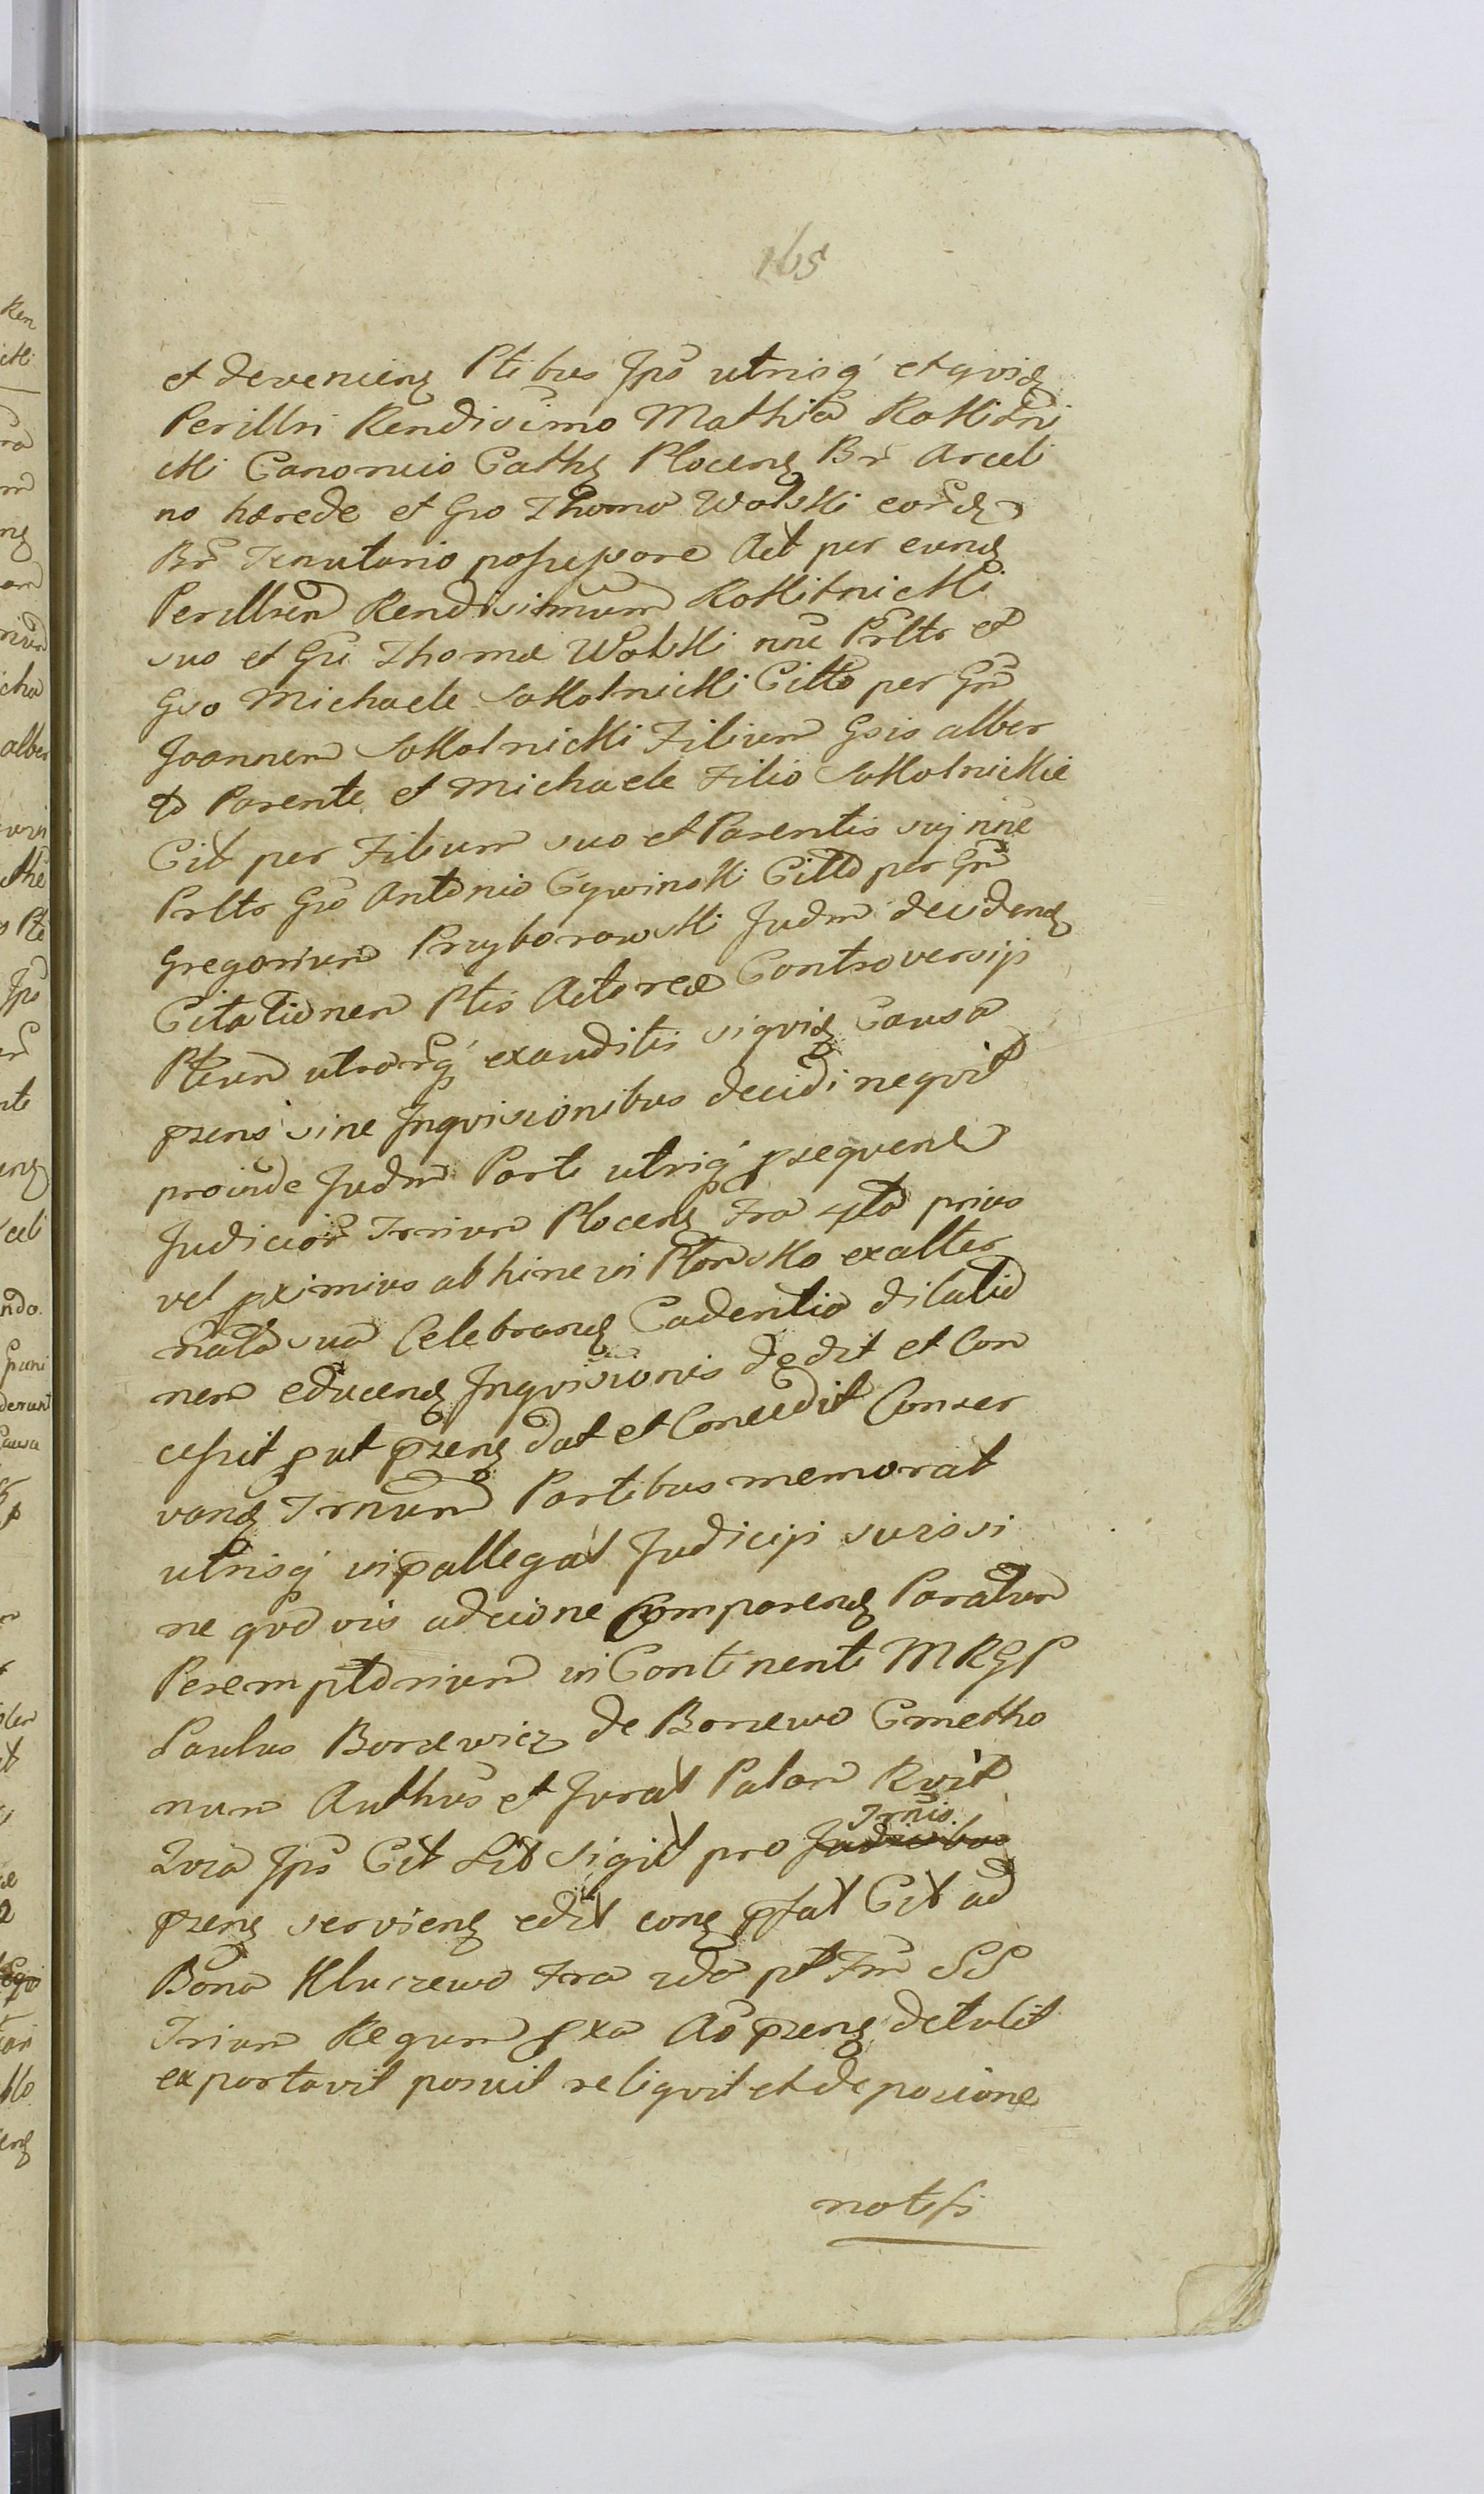 165
et devenien Ptibus Ips utrisq et qvid
Perillri Rendisimo Mathia Rokitni
cki Canonicio Cathd Plocen Br Arceli
no hærede et Gso Thoma Wolski eord
Br Tenutario possessore Act per eund
Perillrem Rendisimum Rokitnicki
suo et Gsi Thomæ Wolski nne Prltr et
Gso Michaele Sokolnicki Citto per Gsm
Joannem Sokolnicki Filium Gsis alber
to Parente et Michaele Filio Sokolnickie
Cit per Filium suo et Parentis suj nne
Prltr Gso Antonio Cywinski Citto per Gsm
Gregorium Przyborowski Judm deciden
Citationem Ptis Actoreæ Controversijs
Ptium utrarq exauditis siqvid Causa
przens sine Inqvisionibus decidi neqvit
proinde Judm Parti utriq prsequent
Judicior Trrium Plocen Fra 4ta prius
vel pximius ab hinc in Plonsko ex alter
nata sua Celebrand Cadentia dilatio
nem educend Inqvisionis dedit et Con
cessit put przens dat et Concedit Conser
vand Trnum Partibus memorat
utrisq in pallegat Judicijs suis si
ne qvovis adcione Comparend Paratum
Peremptorium in Continenti MRGP
Paulus Borzewicz de Bonewo Cmetho
num Authus et Jurat Palam Rvit
Qvia Ips Cit Lit Sigilt pro Trnis
przens serviens edit cong pfat Cit ad
Bona Kluczewo Fra 2da pt Fm SS
Trium Regum pxa Ao przens detulit
exportavit posuit reliqvit et de posicione
notifi